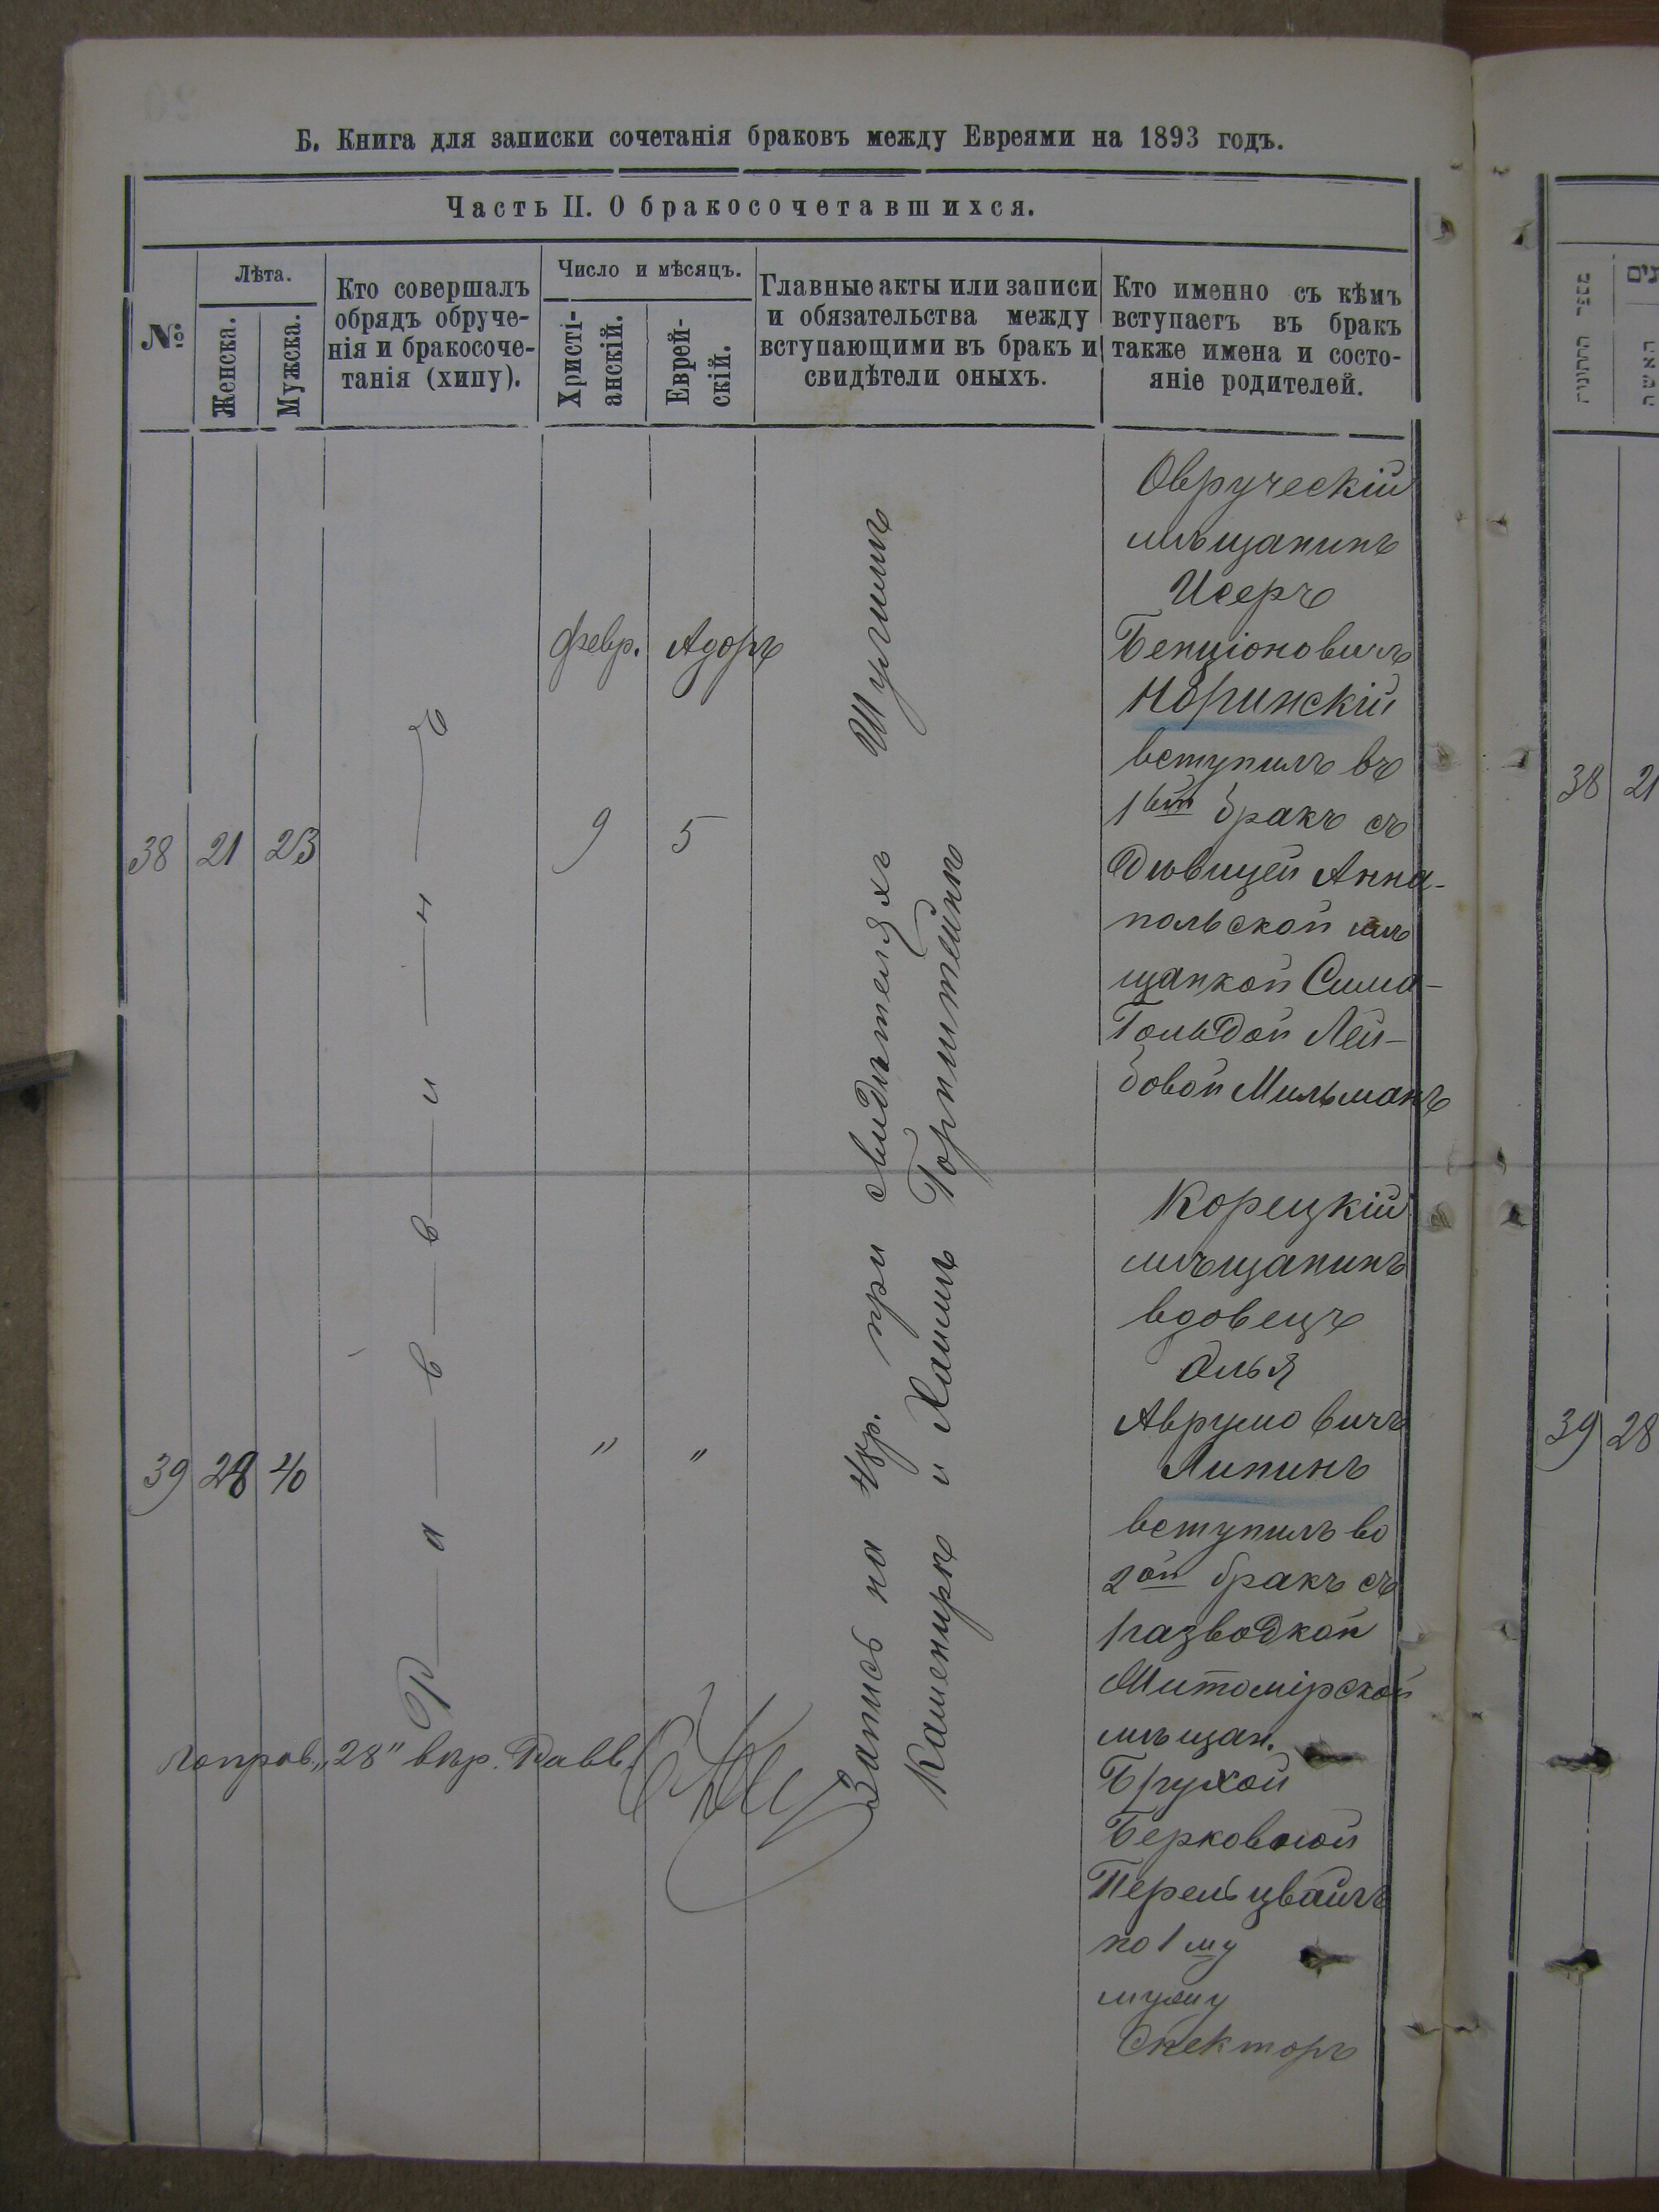 Б. Книга для записки сочетанія браковъ между Евреями на 1893 годъ.
Часть II. О бракосочетавшихся.
№
Лѣта.
Женска.
Мужска.
Кто совершалъ
обрядъ обруче-
нія и бракосоче-
танія (хипу).
Число и мѣсяцъ.
Христі-
анскій.
Еврей-
скій.
Главные акты или записи
и обязательства между
вступающими въ бракъ и
свидѣтели оныхъ.
Кто именно съ кѣмъ
вступаетъ въ бракъ
также имена и состо-
яніе родителей.
38 21 23
Р—а—в—в—и—н—ъ
февр. Адоръ
9 5
Запись на при свидѣтеляхъ Шулимъ
Каменирѣ и Хаимъ Горнштейнъ
Овруческій
мѣщанинъ
Исеръ
Бенціоновичъ
Норинскій
вступилъ въ
1ый бракъ съ
Дѣвицей Анна-
польской мѣ
щанкой Сима-
Гольдой Лей-
бовой Мильманъ
39 28 40
" "
Корецкій
мѣщанинъ
вдовецъ
Элья
Аврумовичъ
Липинъ
вступилъ во
2ой бракъ съ
разводкой
Житомірской
мѣщан.
Брухой
Берковной
Перельцвайгъ
по 1му
мужу
Спекторъ
поправ. „28" вѣр. Равв.
38 21
39 28
מספר החתונות
האשה